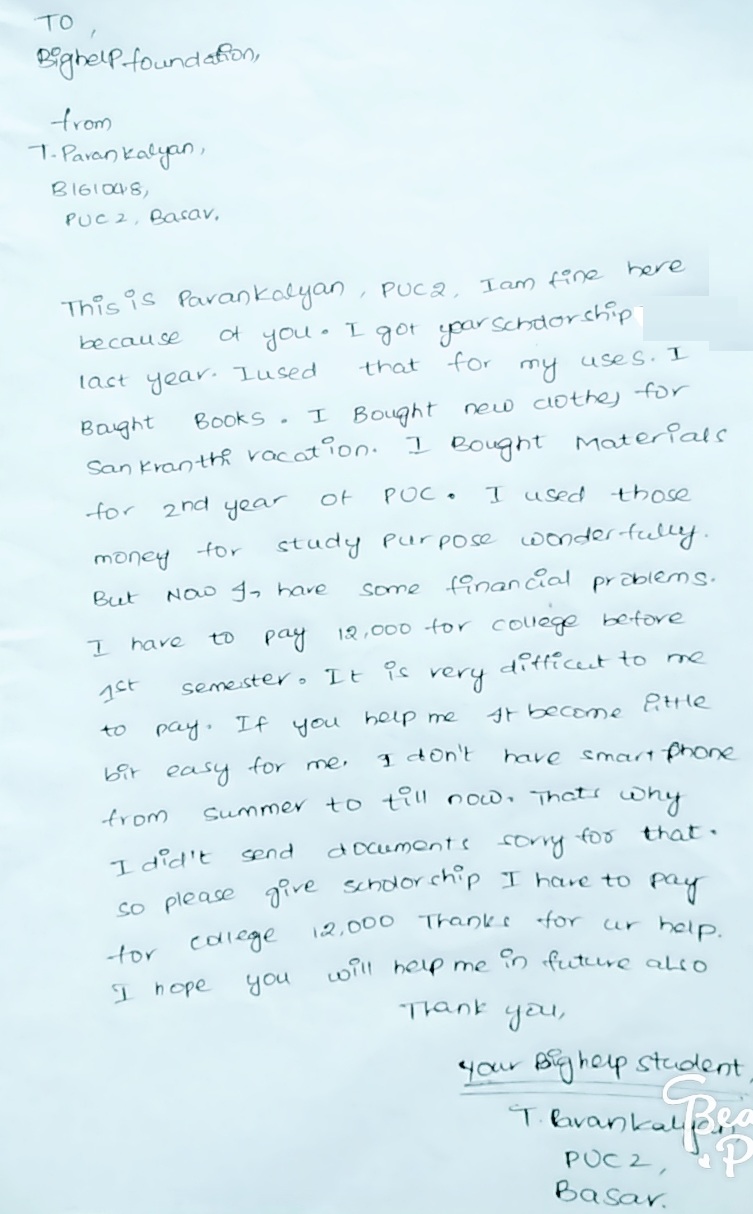 TO,
Bighelp foundation,
from
T. Pavan kalyan,
B161048,
PUC 2, Basar.
This is Pavankalyan, PUC2. I am fine here
because of you. I got your schdorship
last year. I used that for my uses. I
Baught Books. I Bought new clothes for
Sankranthi vacation. I Bought Materials
for 2nd year of PUC. I used those
money for study purpose wonderfully.
But Now I have some financial problems.
I have to pay 12,000 for college before
1st semester. It is very difficult to me
to pay. If you help me It become little
bit easy for me. I don't have smart phone
from summer to till now. Thats why
I did't send documents sorry for that.
so please give scholorship I have to pay
for college 12,000 Thanks for ur help.
I hope you will help me in future also
Thank you,
your Bighelp student,
T. Pavankalyan
PUC 2,
Basar.